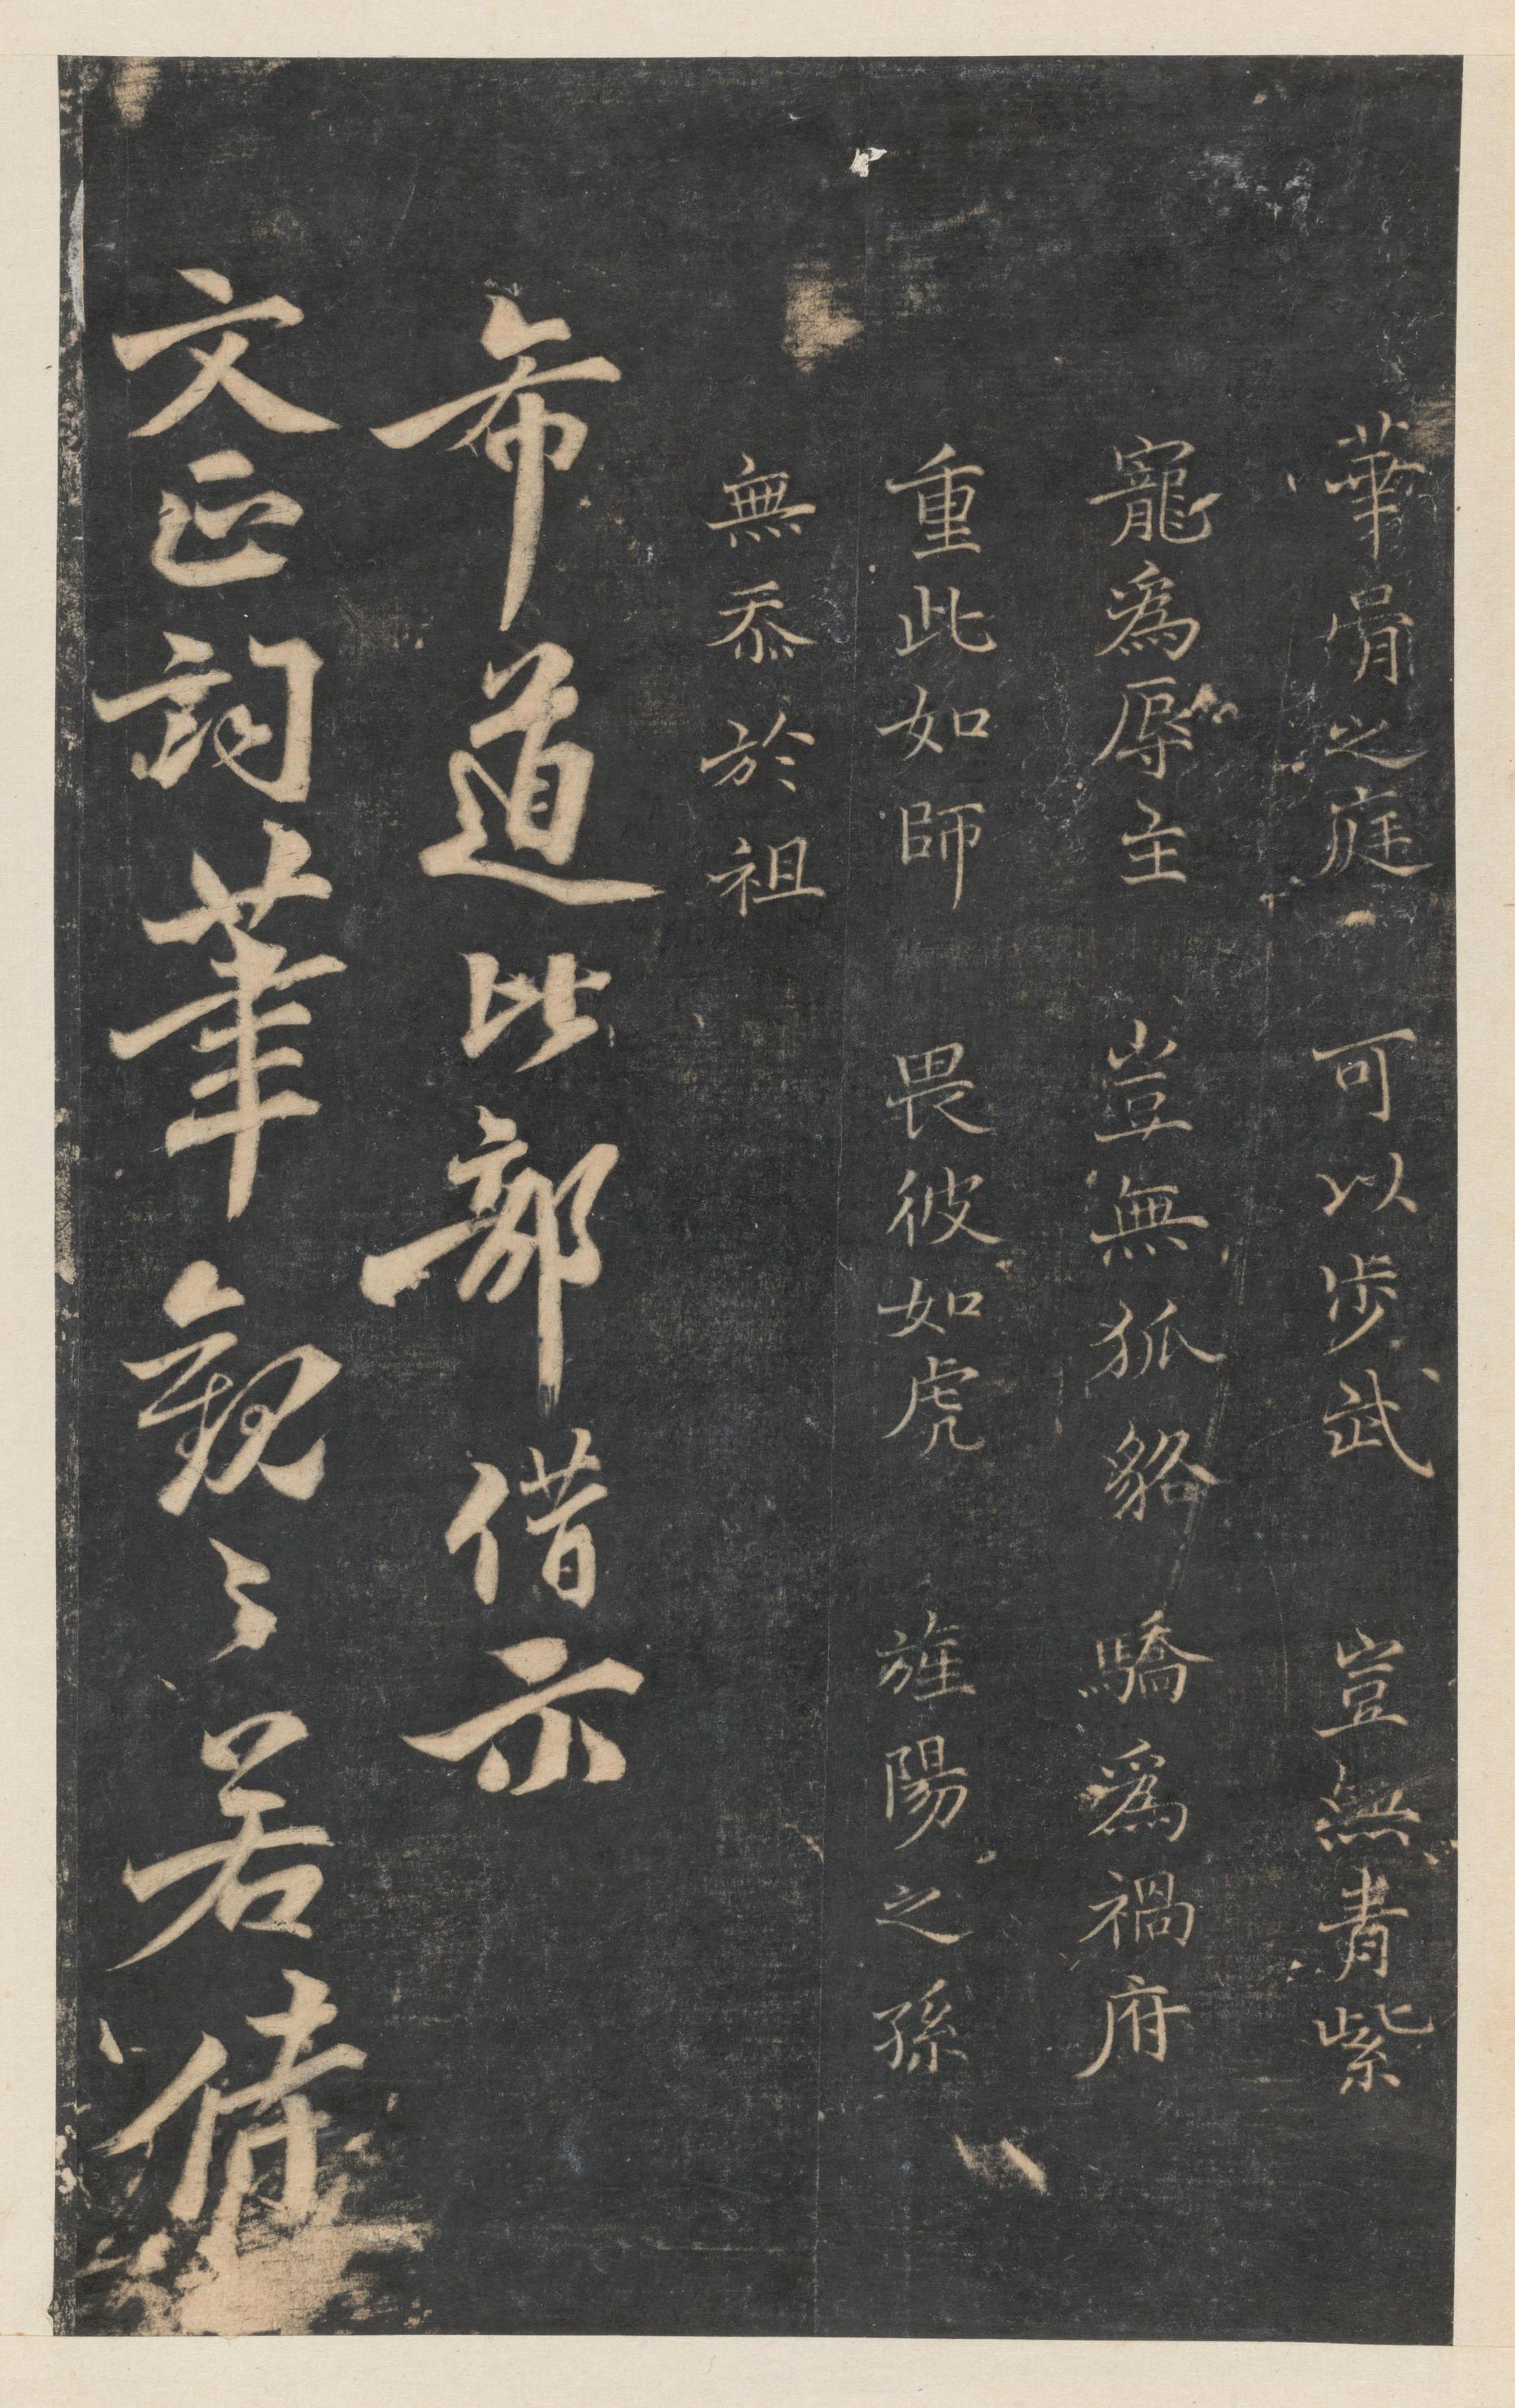 華胥之庭 可以步武 豈無青紫
寵爲辱主 豈無狐貉 驕爲禍府
重此如師 畏彼如虎 旌陽之孫
無忝於祖
希道比部借示
文正詞華觀之若償